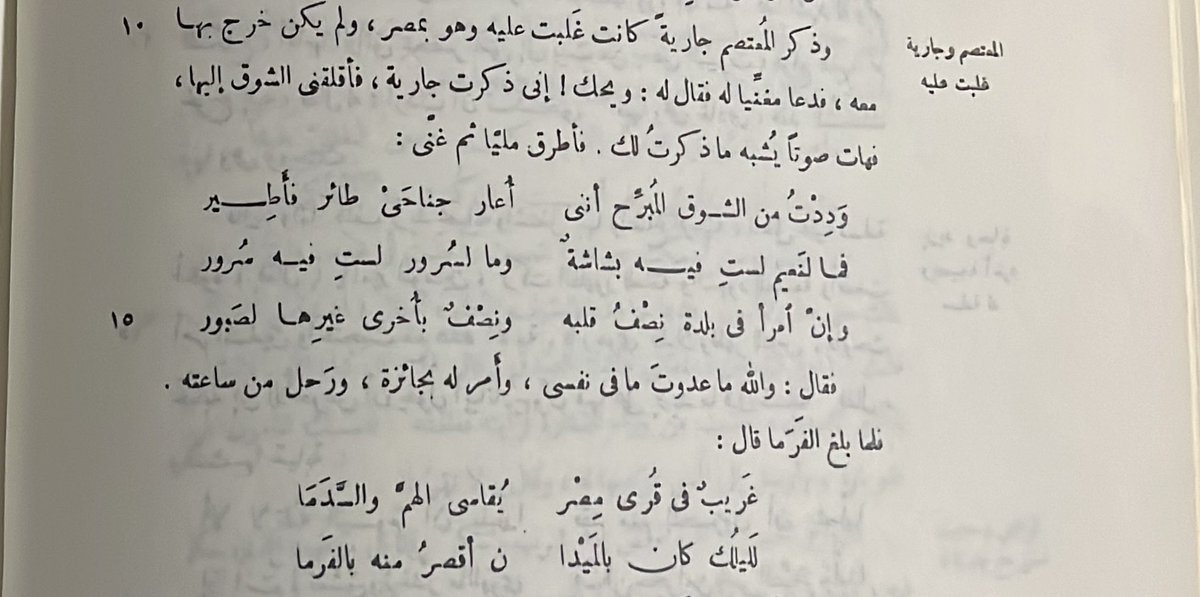 وذكر المُعتصم جاريةً كانت غَلبت عليه وهو بمصر ، ولم يكن خرج بها ١٠
المعتصم وجارية
غلبت عليه
معه ، فدعا مغنِّيا له فقال له : ويحك ! إنى ذكرت جارية ، فأقلقنى الشوق إليها ،
فهات صوتاً يُشبه ما ذكرتُ لك . فأطرق مليًّا ثم غنّى :
وَدِدْتُ من الشوق المُبرِّح أننى أُعار جناحَىْ طائر فأَطِير
فما لنَعيم لستِ فيه بشاشةٌ وما لسُرور لستِ فيه سُرور
وإنّ أمرأ فى بلدة نِصْفُ قلبه ونِصْفٌ بأُخرى غيرِها لصَبور ١٥
فقال : والله ما عدوتَ ما فى نفسى ، وأَمر له بجائزة ، ورَحل من ساعته .
فلما بلغ الفَرَما قال :
غَريبٌ فى قُرى مِصْر يُقاسى الهمّ والسَّدَمَا
لَليلُك كان بالمَيْدا ن أقصرُ منه بالفَرما